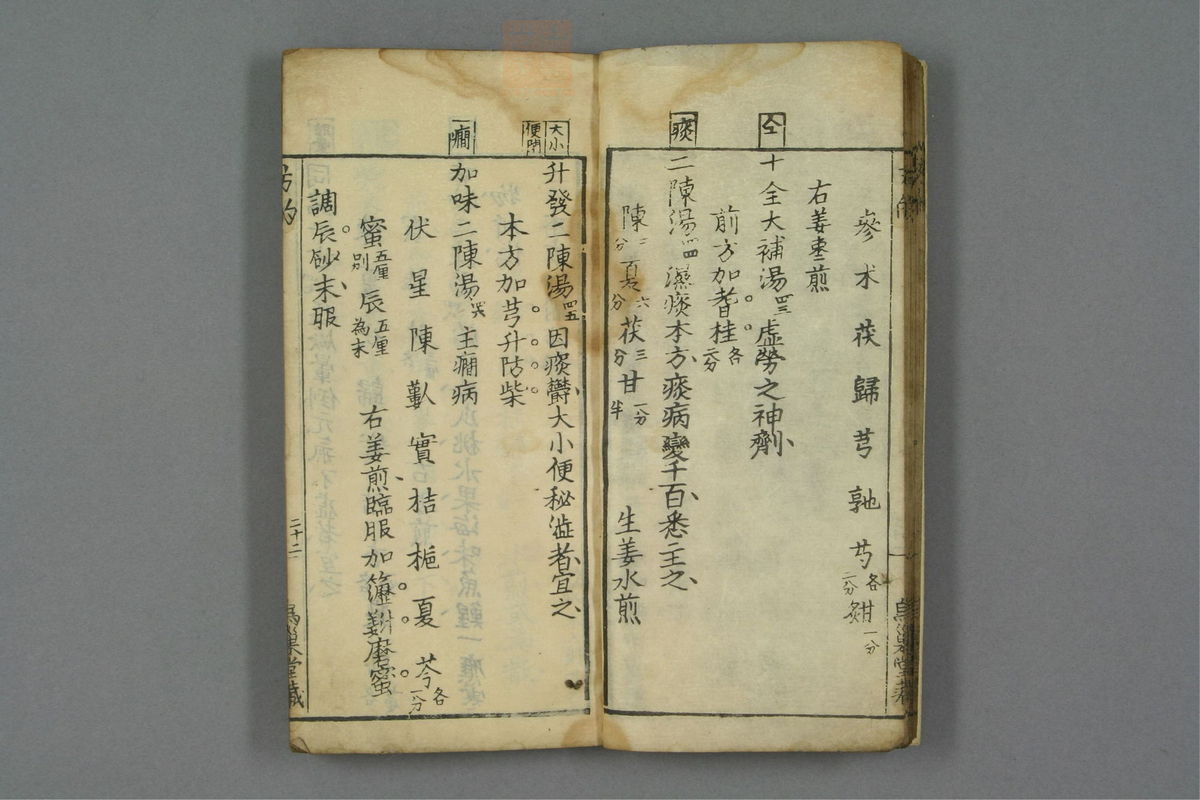 參 朮 茯 歸 芎 芍 各二分 一分
右姜棗煎
十全大補湯 四三 虛勞之神劑
前方加耆桂 各二分
痰
二陳湯 四四 濕痰本方痰病變千百悉主之
陳 二分 夏 六分 茯 三分 甘 一分半 生姜水煎
大小便閉
升發二陳湯 四五 因痰欝大小便秘澁者宜之
本方加芎升防柴
癇
加味二陳湯 四六 主癇病
伏 星 陳 實 桔 梔 夏 芩 各一分
蜜 五厘別 辰 五厘為末 右姜煎臨服加瀝 磨蜜
調辰砂末服
二十二
巢堂藏